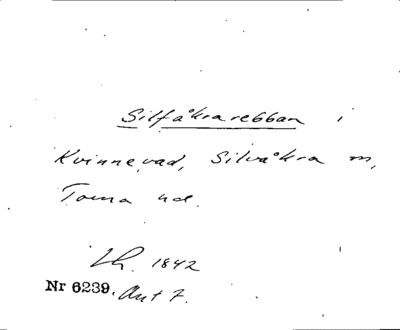 Silfåkrarebban i
Kvinnevad, Silvåkra m,
Torna hd.
Lh. 1842
Nr 6239. Akt 7.